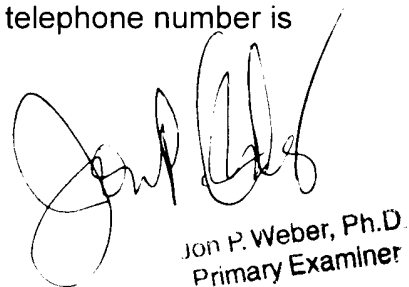 telephone number is
Jon P. Weber
Jon P. Weber, Ph.D.
Primary Examiner